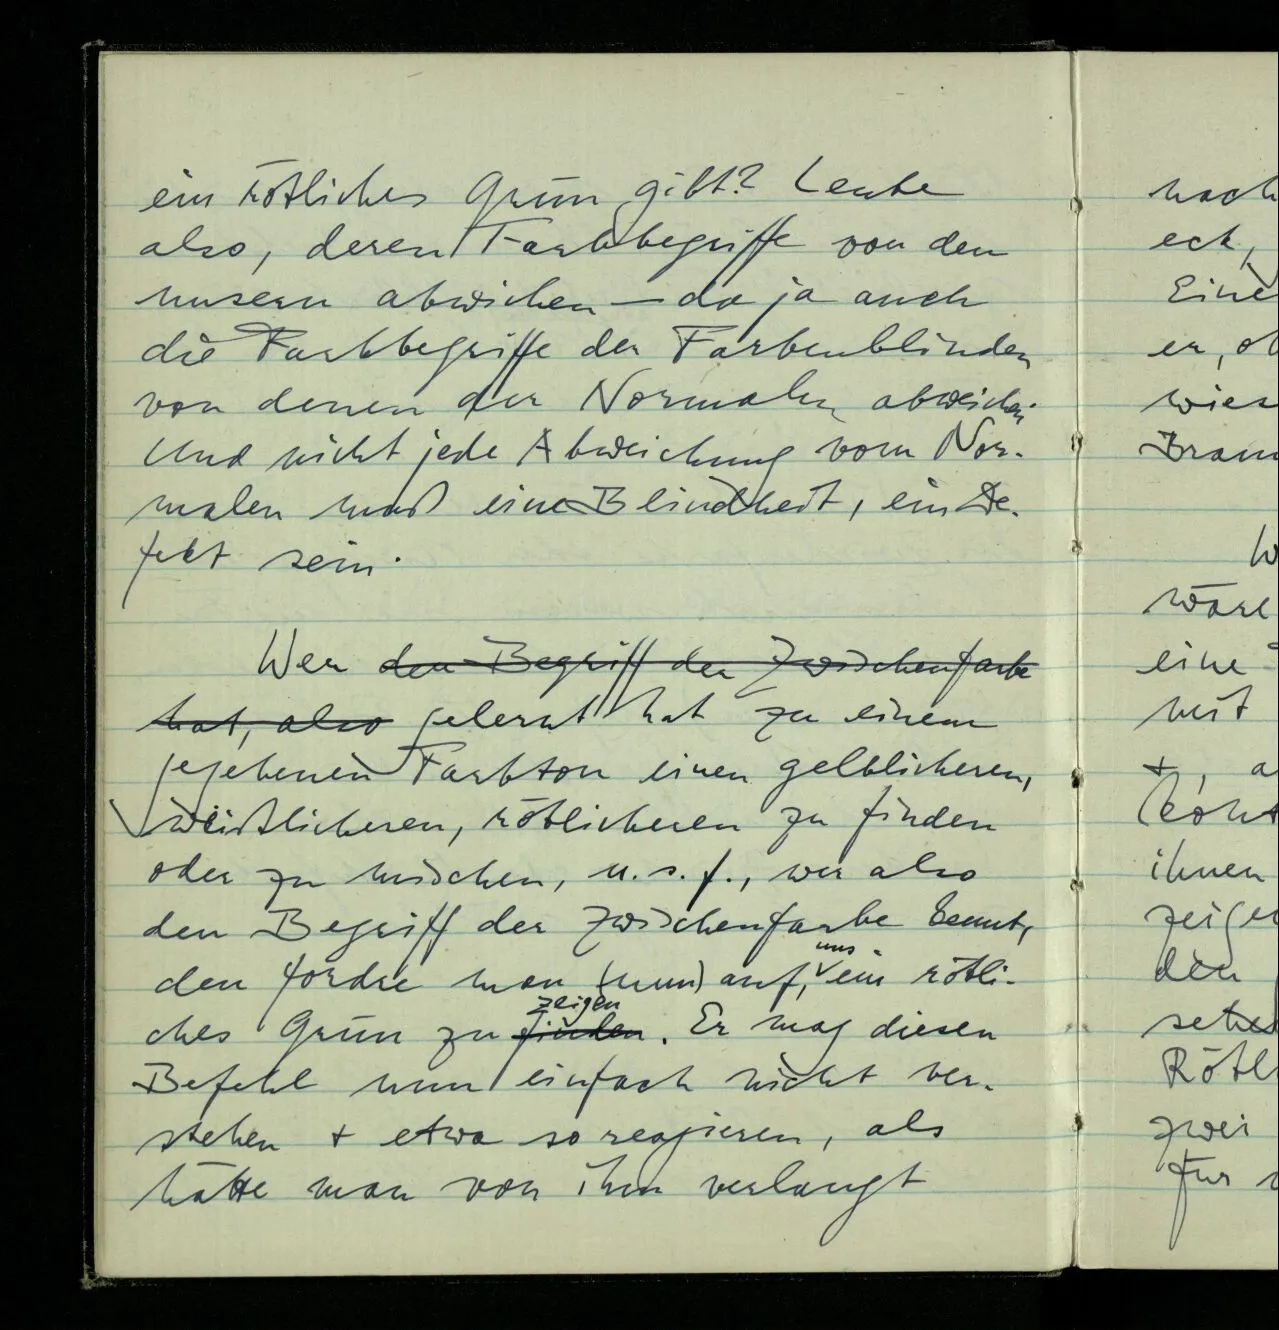 ein rötliches Grün gibt? Leute
also, deren Farbbegriffe von den
unsern abwichen — da ja auch
die Farbbegriffe der Farbenblinden
von denen der Normalen abweichen.
Und nicht jede Abweichung vom Nor-
malen muß eine Blindheit, ein De-
fekt sein.
Wer den Begriff der Zwischenfarbe
hat, also gelernt hat zu einem
gegebenen Farbton einen gelblicheren,
weißlicheren, rötlicheren zu finden
oder zu mischen, u.s.f., wer also
den Begriff der Zwischenfarbe kennt,
uns
den fordre man (nun) auf, ein rötli-
zeigen
ches Grün zu finden. Er mag diesen
Befehl nun einfach nicht ver-
stehen + etwa so reagieren, als
hätte man von ihm verlangt
nach
eck,
Eine
er, ob
wies
Braun
wäre
eine
mit
+, a
leicht
ihnen
zeigen
den
sehe
Rötl
zwei
für